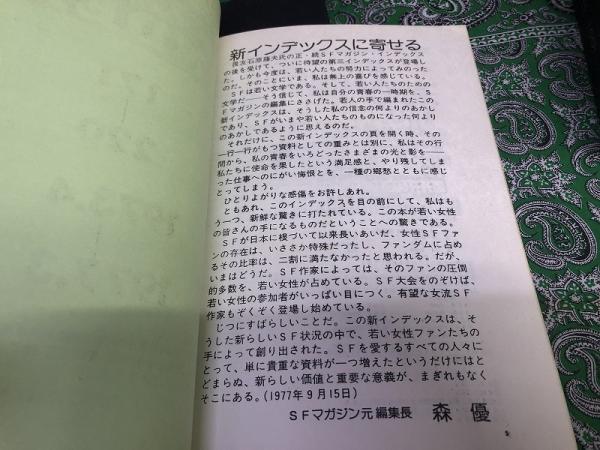 新インデックスに寄せる
良友石原藤夫氏の正・続SFマガジン・インデックス
の後を受けて、ついに待望の第三インデックスが登場し
た。しかも今度は、若い人たちの努力によってみのった
のだ。そのことにいま、私は無上の喜びを感じている。
SFは若い文学である。そして、若い人たちのための
文学だ――そう信じて、私は自分の青春の一時期を、S
Fマガジンの編集にささげた。若人の手で編まれたこの
新インデックスは、そうした私の信念の何よりのあかし
であり、SFがいまや若い人たちのものになった何より
のあかしであるように思えるのだ。
それだけに、この新インデックスの頁を開く時、その
一行一行がもつ資料としての重みとは別に、私はその行
間から、私の青春をいろどったさまざまの光と影を――
私たちに使命を果したという満足感と、やり残してしま
った仕事へのにがい悔恨とを、一種の郷愁とともに感じ
とってしまう。
ひとりよがりな感傷をお許しあれ。
ともあれ、このインデックスを目の前にして、私はも
う一つ、新鮮な驚きに打たれている。この本が若い女性
の皆さんの手になるものだということへの驚きである。
SFが日本に根づいて以来長いあいだ、女性SFファ
ンの存在は、いささか特殊だったし、ファンダムに占め
るその比率は、二割に満たなかったと思われる。だが、
いまはどうだ。SF作家によっては、そのファンの圧倒
的多数を、若い女性が占めている。SF大会をのぞけば、
若い女性の参加者がいっぱい目につく。有望な女流SF
作家もぞくぞく登場し始めている。
じつにすばらしいことだ。この新インデックスは、そ
うした新らしいSF状況の中で、若い女性ファンたちの
手によって創り出された。SFを愛するすべての人々に
とって、単に貴重な資料が一つ増えたというだけにはと
どまらぬ、新らしい価値と重要な意義が、まぎれもなく
そこにある。(1977年9月15日)
SFマガジン元編集長 森 優